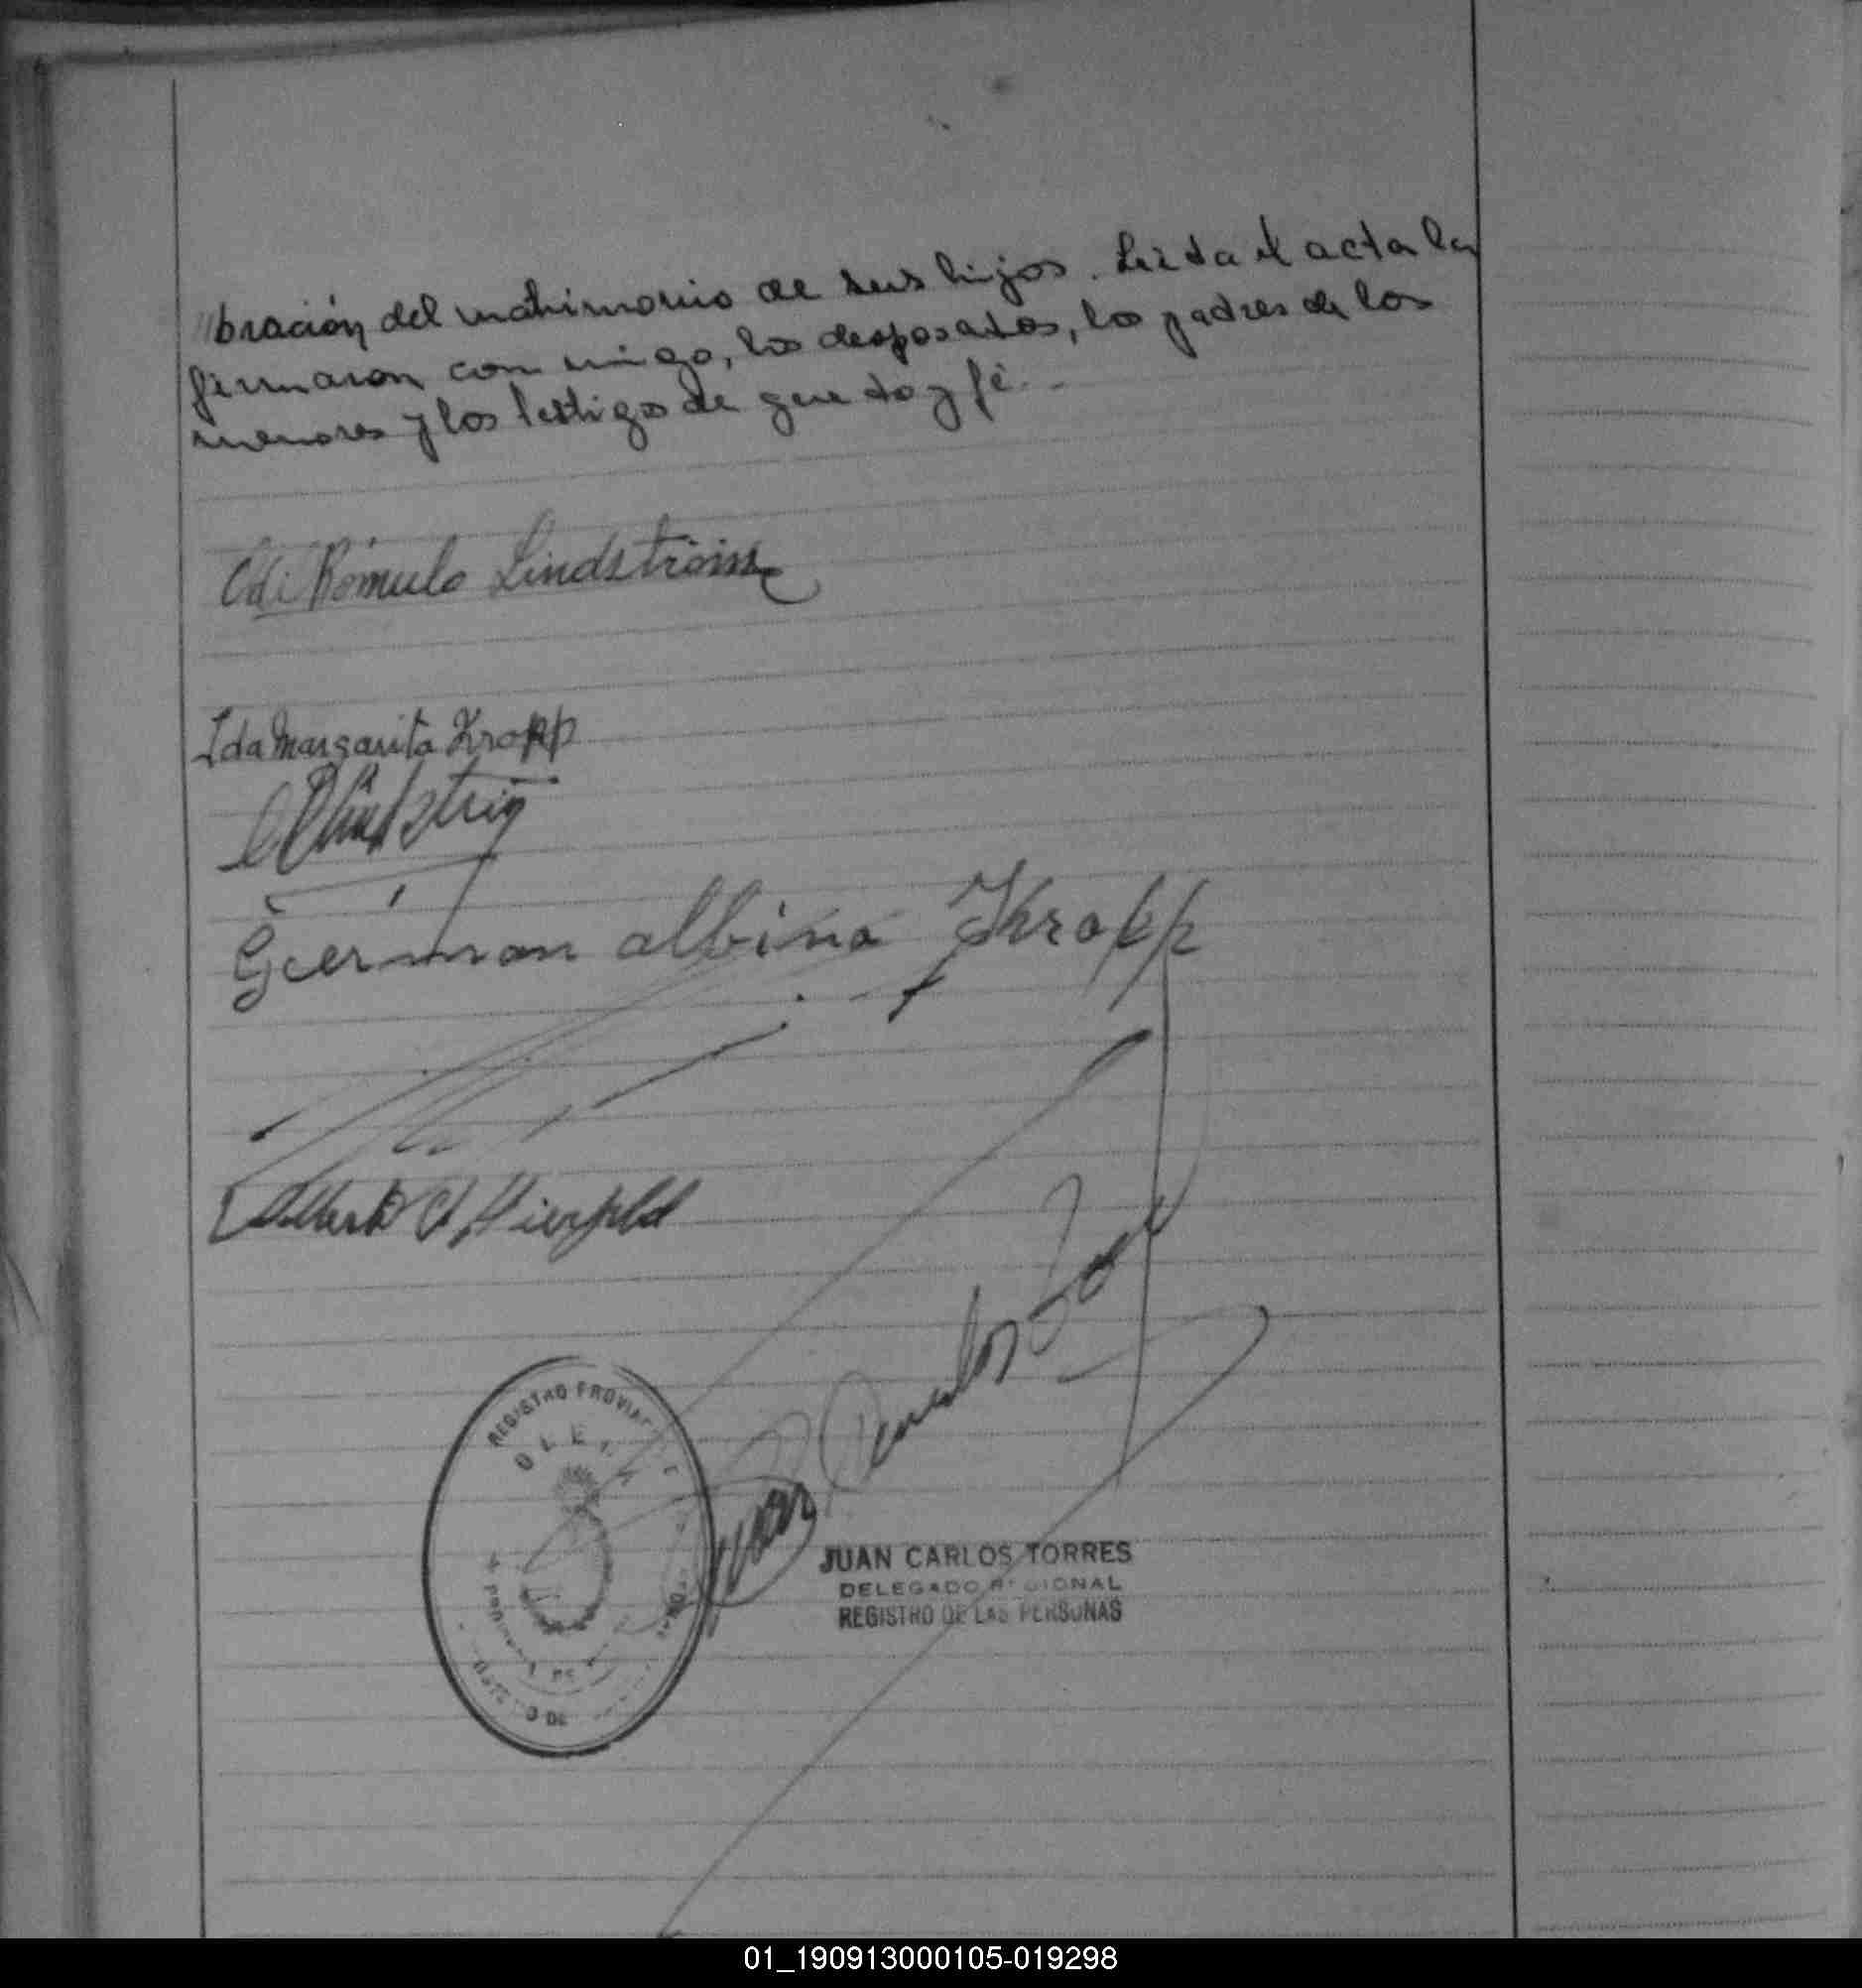 bración del matrimonio de sus hijos. Leída el acta la
firmaron con migo, los desposados, los padres de los
menores y los testigos de que doy fé.-
Rómulo Lindström
Ida Margarita Kropp
German albino Kropp
Juan Carlos
REGISTRO PROVIN
JUAN CARLOS TORRES
DELEGADO REGIONAL
REGISTRO DE LAS PERSONAS
01_190913000105-019298